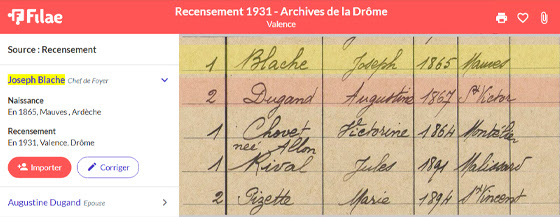 Filae
Recensement 1931 - Archives de la Drôme
Valence
Source : Recensement
Joseph Blache Chef de Foyer
Naissance
En 1865, Mauves, Ardèche
Recensement
En 1931, Valence, Drôme
Importer Corriger
Augustine Dugand Epouse
1 Blache Joseph 1865 Mauves
2 Dugand Augustine 1867 St Victor
1 Chovet Victorine 1864 Montélier
née Allon
1 Rival Jules 1891 Malissard
2 Pizette Marie 1894 St Vincent